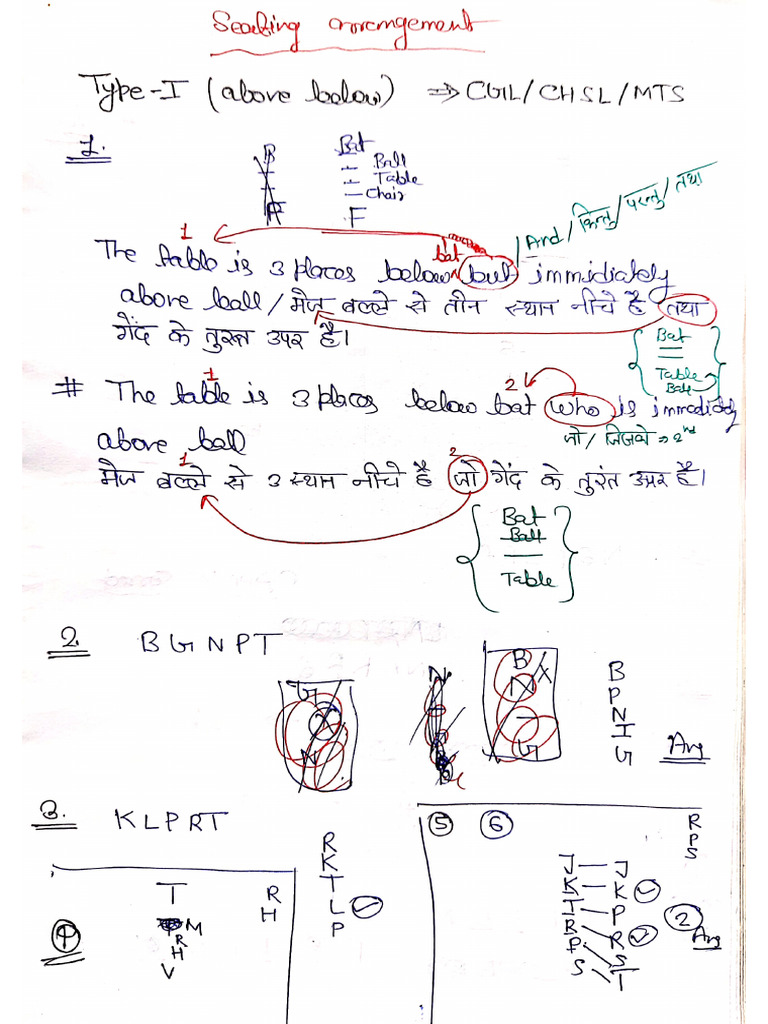 Seating arrangement
Type-I (above below) ⇒ CGL/CHSL/MTS
1.
B
F
Bat
- Ball
- Table
- Chair
F
And/किन्तु/परन्तु/तथा
1
bat
The table is 3 places below but immidiately
above ball/मेज बल्ले से तीन स्थान नीचे है तथा
गेंद के तुरन्त उपर है।
Bat
Table
Ball
1 2
# The table is 3 places below bat who is immediatly
above ball
जो/जिसके ⇒ 2nd
1 2
मेज बल्ले से 3 स्थान नीचे है जो गेंद के तुरंत उपर है।
Bat
Ball
Table
2. B G N P T
G
N
N
B X
N
T
G
B
P
N
I
G
Ans
3. K L P R T
R
K
T
L
P
4
T
M
R
H
V
R
H
5 6
R
P
S
J — J
K — K
T — P
R — R
P — S
S — T
2
Ans